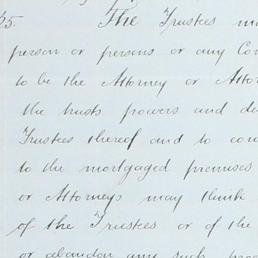 35. The Trustees m
person or persons or any Co
to be the Attorney or Attor
the trusts powers and d
Trustees thereof and to co
to the mortgaged premises
or Attorneys may think
of the Trustees or of the
or abandon any such proc